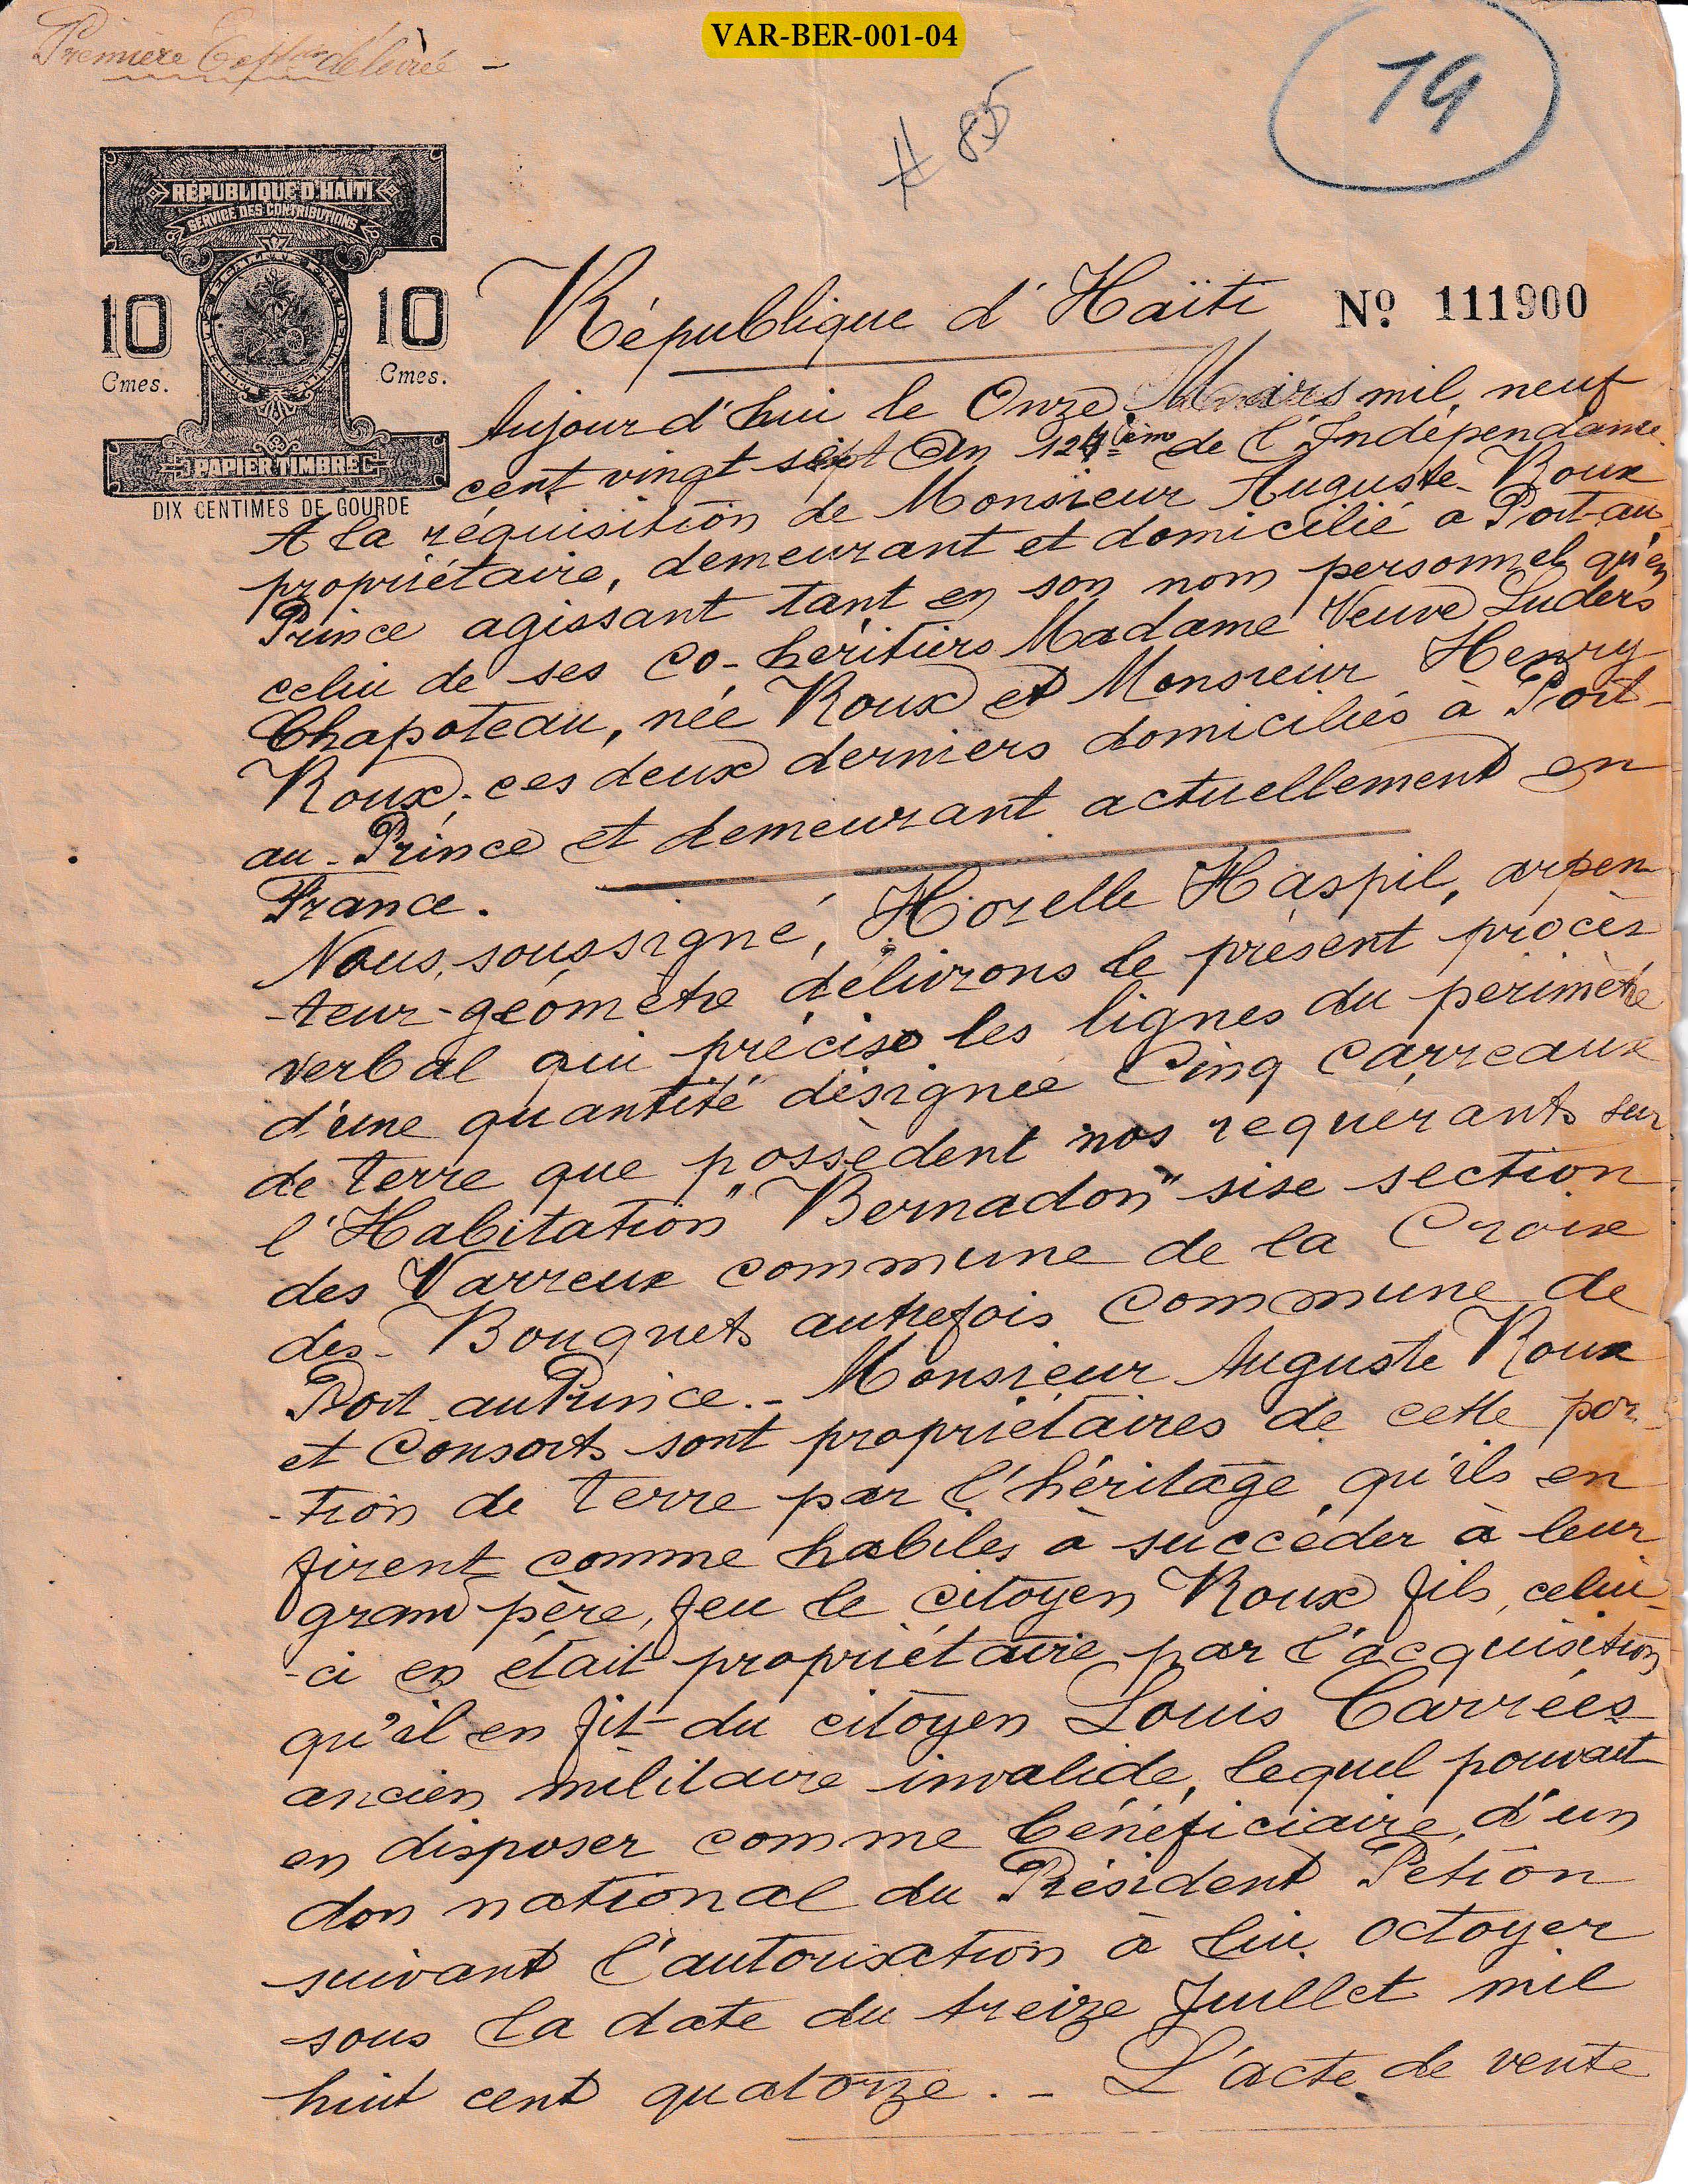 VAR-BER-001-04
Première Expéd⁽ᵒⁿ⁾ délivrée -
# 85
19
RÉPUBLIQUE D'HAÏTI
SERVICE DES CONTRIBUTIONS
10 10
Cmes. Cmes.
PAPIER TIMBRE
DIX CENTIMES DE GOURDE
République d'Haïti
Nº 111900
Aujourd'hui le Onze Mars mil neuf
cent vingt sept An 124ème de l'Indépendance.
A la réquisition de Monsieur Auguste Roux
propriétaire, demeurant et domicilié a Port-au-
Prince agissant tant en son nom personnel qu'en
celui de ses co-héritiers Madame Veuve Luders
Chapoteau, née Roux et Monsieur Henry
Roux, ces deux derniers domiciliés à Port-
au-Prince et demeurant actuellement en
France.
Nous, soussigné, Horelle Haspil, arpen
-teur-géomètre délivrons le présent procès
verbal qui précise les lignes du périmètre
d'une quantité désignée Cinq Carreaux
de terre que possèdent nos requérants sur
l'Habitation "Bernadon" sise section
des Varreux commune de la Croix
des-Bouquets autrefois commune de
Port auPrince.- Monsieur Auguste Roux
et Consorts sont propriétaires de cette por
-tion de terre par l'héritage qu'ils en
firent comme habiles à succéder à leur
grand père, feu le citoyen Roux fils, celui-
-ci en était propriétaire par l'acquisition
qu'il en fit du citoyen Louis Carrées
ancien militaire invalide, lequel pouvait
en disposer comme bénéficiaire d'un
don national du Président Petion
suivant l'autorisation à lui octoyer
sous la date du treize Juillet mil
huit cent quatorze. - L'acte de vente